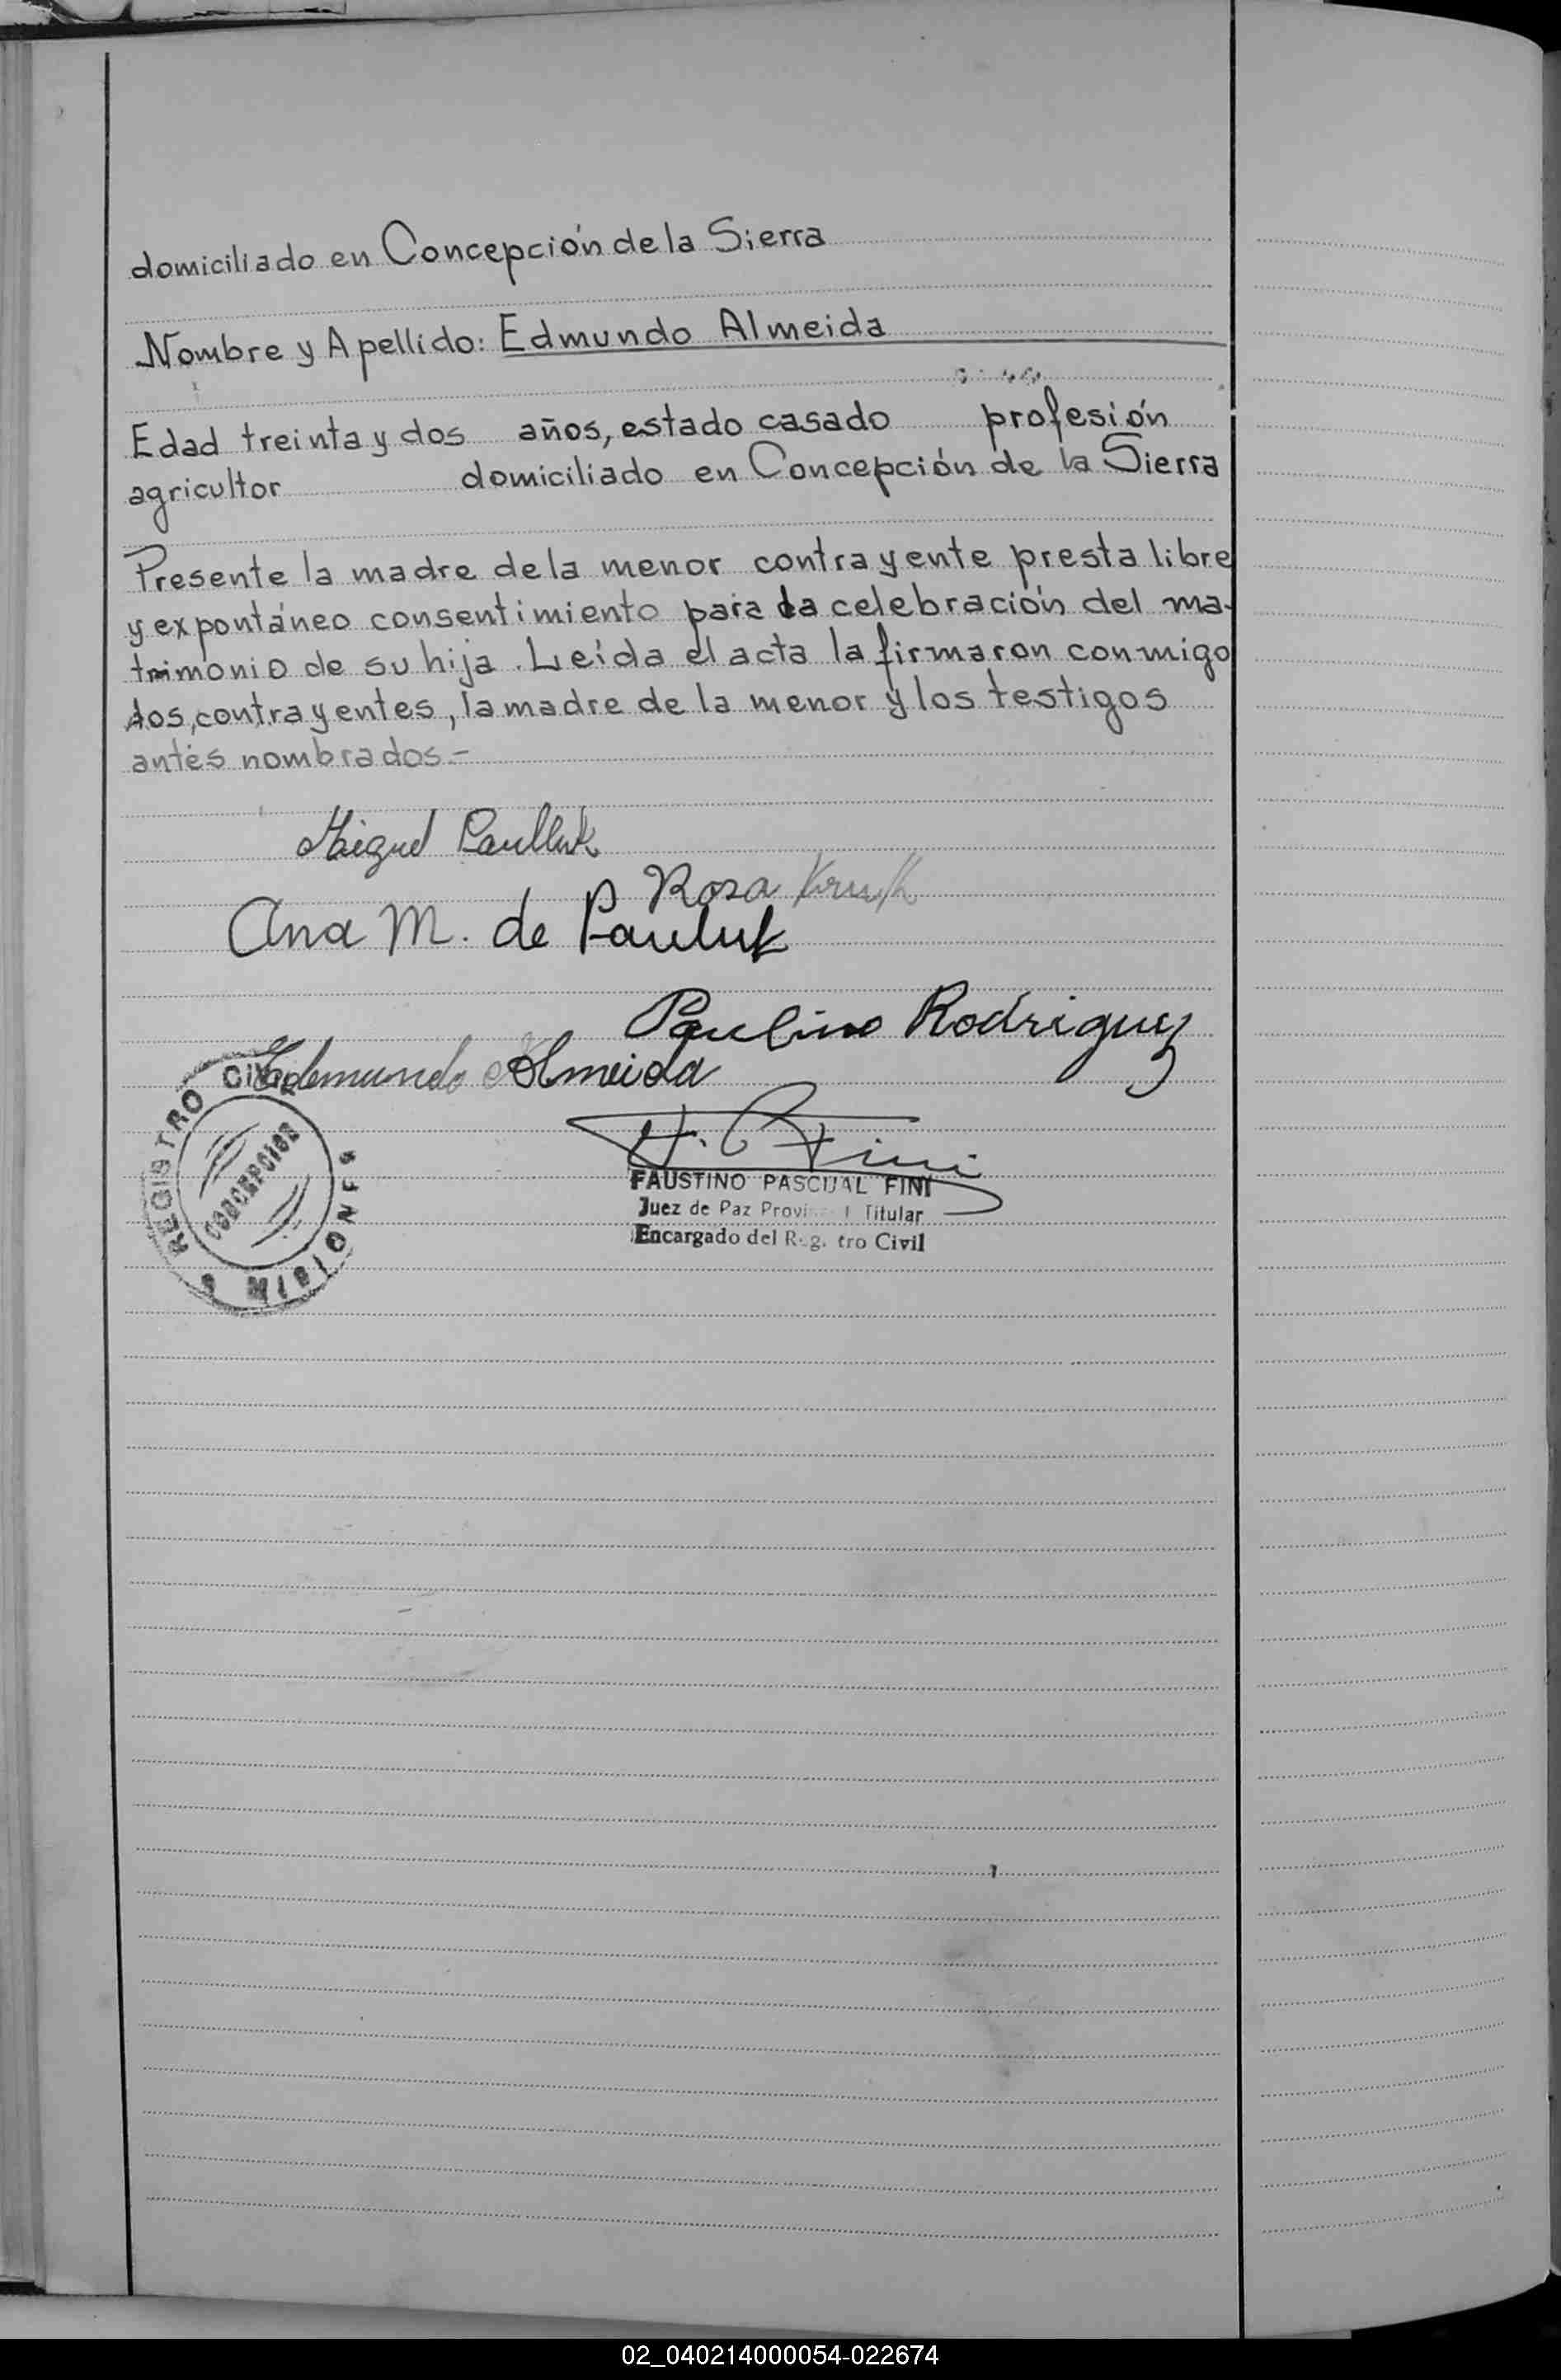 domiciliado en Concepción de la Sierra
Nombre y Apellido: Edmundo Almeida
Edad treinta y dos años, estado casado profesión
agricultor domiciliado en Concepción de la Sierra
Presente la madre de la menor contrayente presta libre
y expontáneo consentimiento para la celebración del ma-
trimonio de su hija. Leída el acta la firmaron conmigo
los, contrayentes, la madre de la menor y los testigos
antes nombrados.-
Miguel Paulluk
Rosa Kruk
Ana M. de Pauluk
Paulino Rodriguez
Edemundo Almeida
F. P. Fini
FAUSTINO PASCUAL FINI
Juez de Paz Provi l Titular
Encargado del Reg. tro Civil
REGISTRO CIVIL
CONCEPCION
MISIONES
02_040214000054-022674